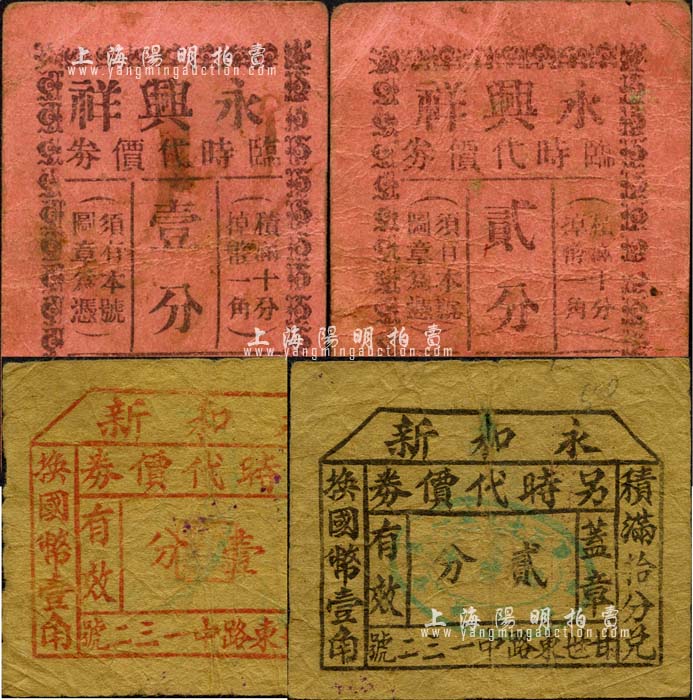 上海陽明拍賣
www.yangmingauction.com
祥興永
券價代時臨
積滿十分
掉幣一角
壹分
須有本號
圖章為憑
祥興永
券價代時臨
積滿十分
掉幣一角
貳分
須有本號
圖章為憑
上海陽明拍賣
www.yangmingauction.com
新和
券價代時
分壹
有效
換國幣壹角
號二三一中路東
新和永
券價代時
另蓋章
積滿拾分兌
分貳
有效
換國幣壹角
號二三一中路東
上海陽明拍賣
www.yangmingauction.com